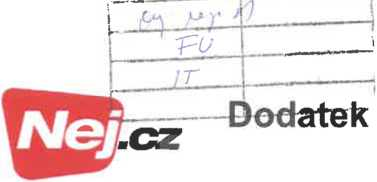 FU
IT
Nej.cz
Dodatek